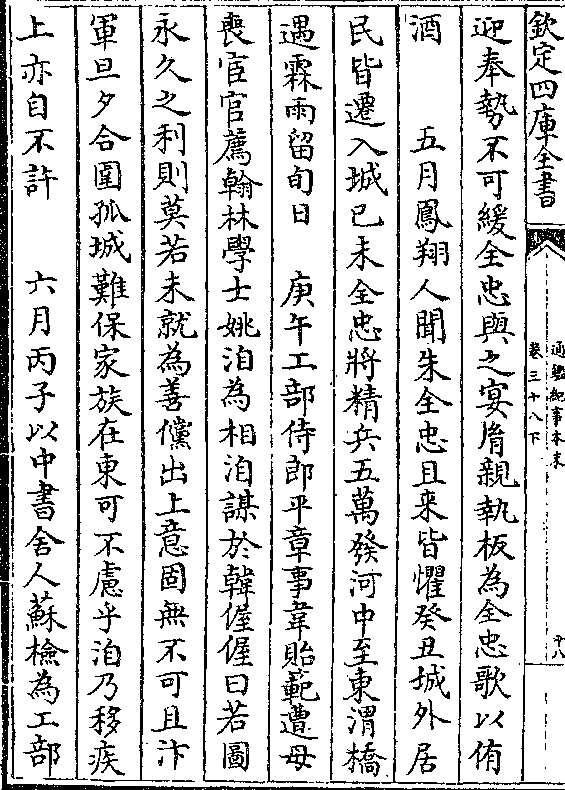 欽定四庫全書
通鑑紀事本末
卷三十八下
十八
迎奉勢不可緩全忠與之宴𦙍親執板為全忠歌以侑
酒　五月鳳翔人聞朱全忠且来皆懼癸丑城外居
民皆遷入城已未全忠將精兵五萬發河中至東渭橋
遇霖雨留旬日　庚午工部侍郎平章事韋貽範遭母
喪宦官薦翰林學士姚洎為相洎謀於韓偓偓曰若圖
永久之利則莫若未就為善儻出上意固無不可且汴
軍旦夕合圍孤城難保家族在東可不慮乎洎乃移疾
上亦自不許　六月丙子以中書舍人蘇檢為工部